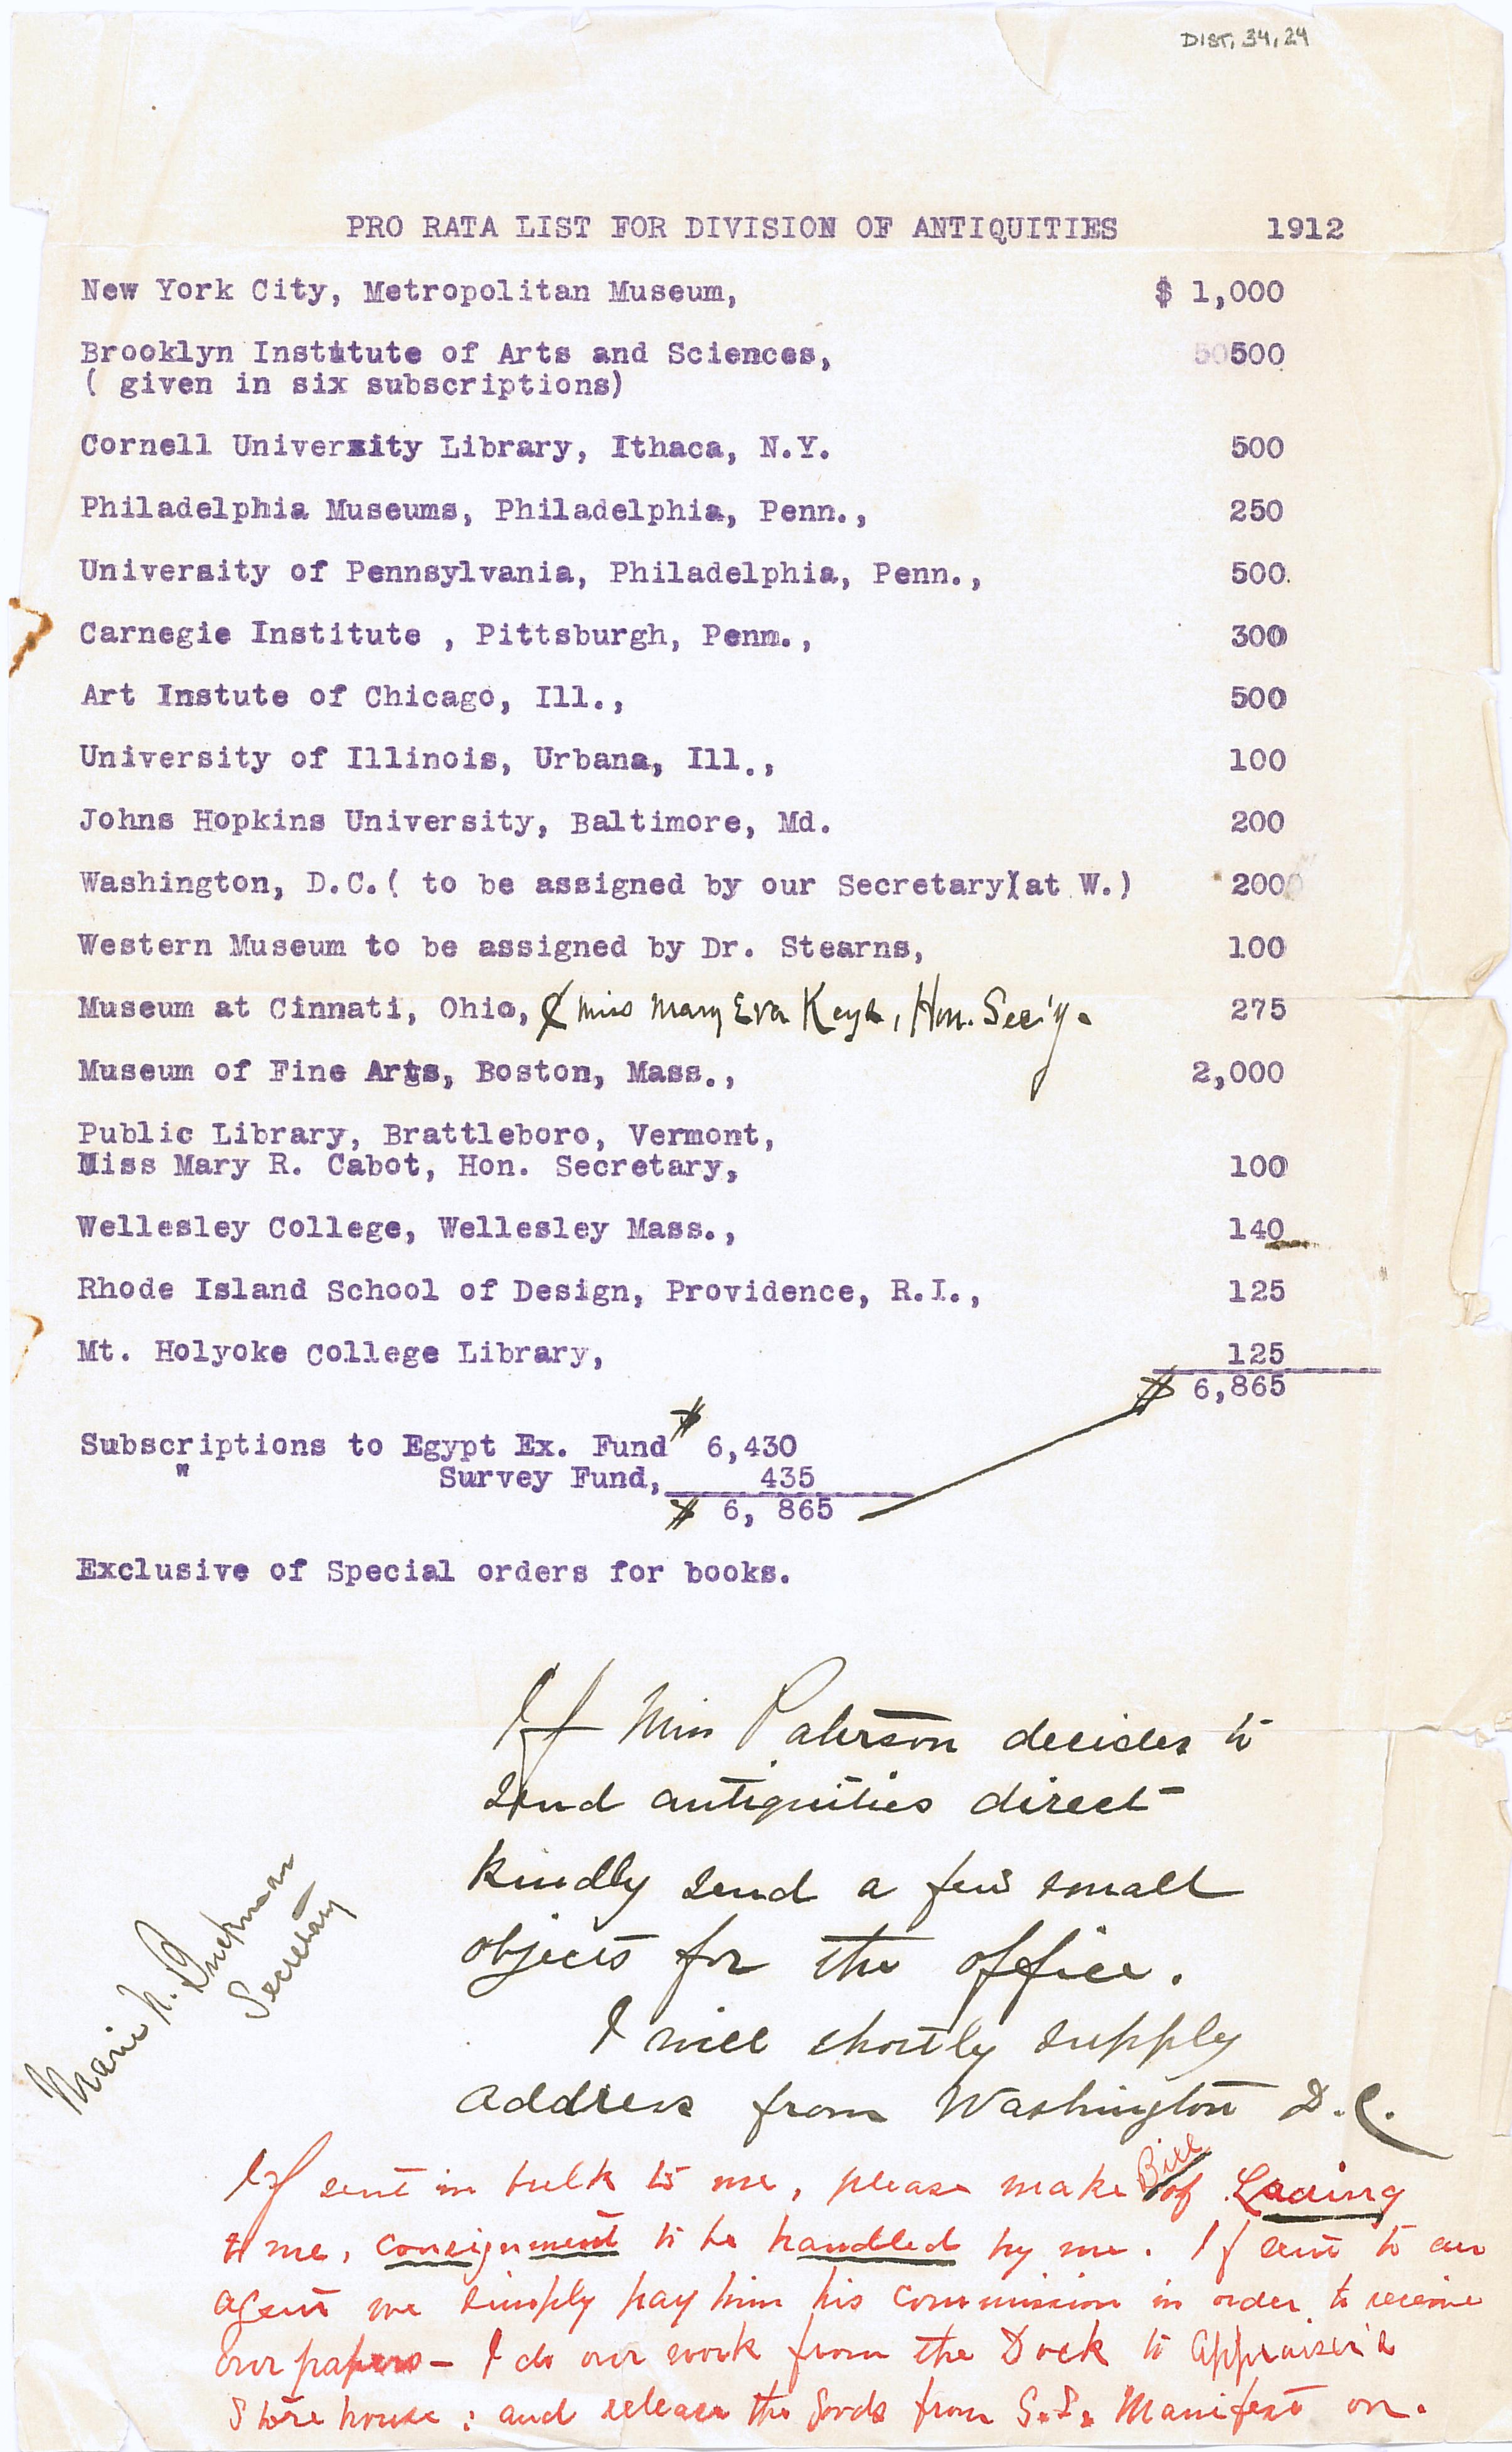 DIST. 34, 24
PRO RATA LIST FOR DIVISION OF ANTIQUITIES 1912
New York City, Metropolitan Museum, $ 1,000
Brooklyn Institute of Arts and Sciences, 500
( given in six subscriptions)
Cornell University Library, Ithaca, N.Y. 500
Philadelphia Museums, Philadelphia, Penn., 250
University of Pennsylvania, Philadelphia, Penn., 500.
Carnegie Institute , Pittsburgh, Penn., 300
Art Instute of Chicago, Ill., 500
University of Illinois, Urbana, Ill., 100
Johns Hopkins University, Baltimore, Md. 200
Washington, D.C.( to be assigned by our Secretary(at W.) 200
Western Museum to be assigned by Dr. Stearns, 100
Museum at Cinnati, Ohio, Miss Mary Eva Keys, Hon. Sec'y. 275
Museum of Fine Arts, Boston, Mass., 2,000
Public Library, Brattleboro, Vermont,
Miss Mary R. Cabot, Hon. Secretary, 100
Wellesley College, Wellesley Mass., 140
Rhode Island School of Design, Providence, R.I., 125
Mt. Holyoke College Library, 125
$ 6,865
Subscriptions to Egypt Ex. Fund $ 6,430
" Survey Fund, 435
$ 6, 865
Exclusive of Special orders for books.
If Miss Paterson decides to
send antiquities direct
kindly send a few small
objects for the office.
I will shortly supply
address from Washington D.C.
Marie N. Buckman
Secretary
If sent in bulk to me, please make Bill of Lading
to me, consignment to be handled by me. If sent to an
agent we simply pay him his commission in order to receive
our papers - I do our work from the Dock to Appraiser's
Store house; and release the goods from S.S. Manifest on.